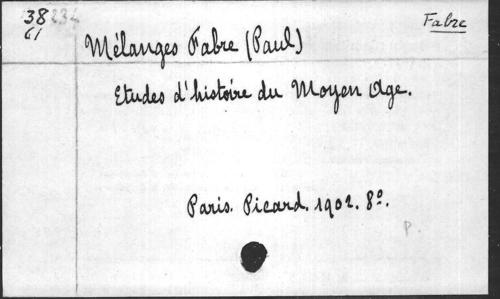 38 234
61
Fabre
Mélanges Fabre (Paul)
Etudes d'histoire du Moyen Age.
Paris. Picard. 1902. 8º.
P.